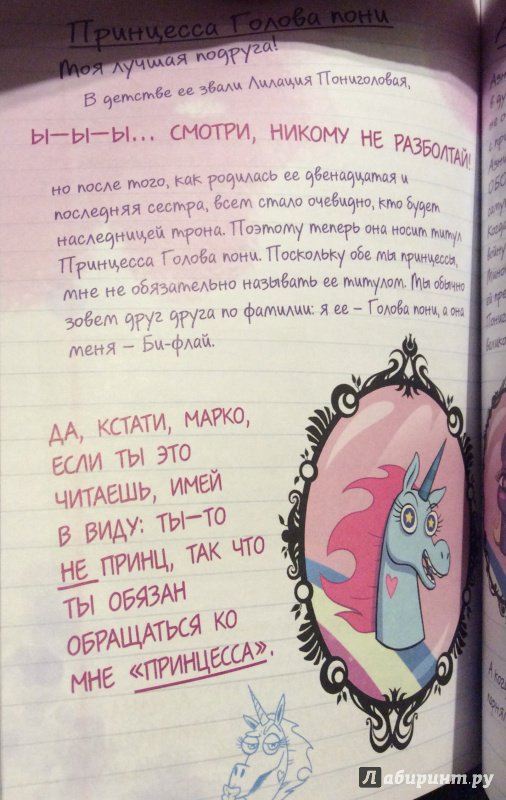 Принцесса Голова пони
Моя лучшая подруга!
В детстве ее звали Лилация Пониголовая,
Ы–Ы–Ы... СМОТРИ, НИКОМУ НЕ РАЗБОЛТАЙ!
но после того, как родилась ее двенадцатая и
последняя сестра, всем стало очевидно, кто будет
наследницей трона. Поэтому теперь она носит титул
Принцесса Голова пони. Поскольку обе мы принцессы,
мне не обязательно называть ее титулом. Мы обычно
зовем друг друга по фамилии: я ее – Голова пони, а она
меня – Би-флай.
ДА, КСТАТИ, МАРКО,
ЕСЛИ ТЫ ЭТО
ЧИТАЕШЬ, ИМЕЙ
В ВИДУ: ТЫ–ТО
НЕ ПРИНЦ, ТАК ЧТО
ТЫ ОБЯЗАН
ОБРАЩАТЬСЯ КО
МНЕ «ПРИНЦЕССА».
Лабиринт.ру